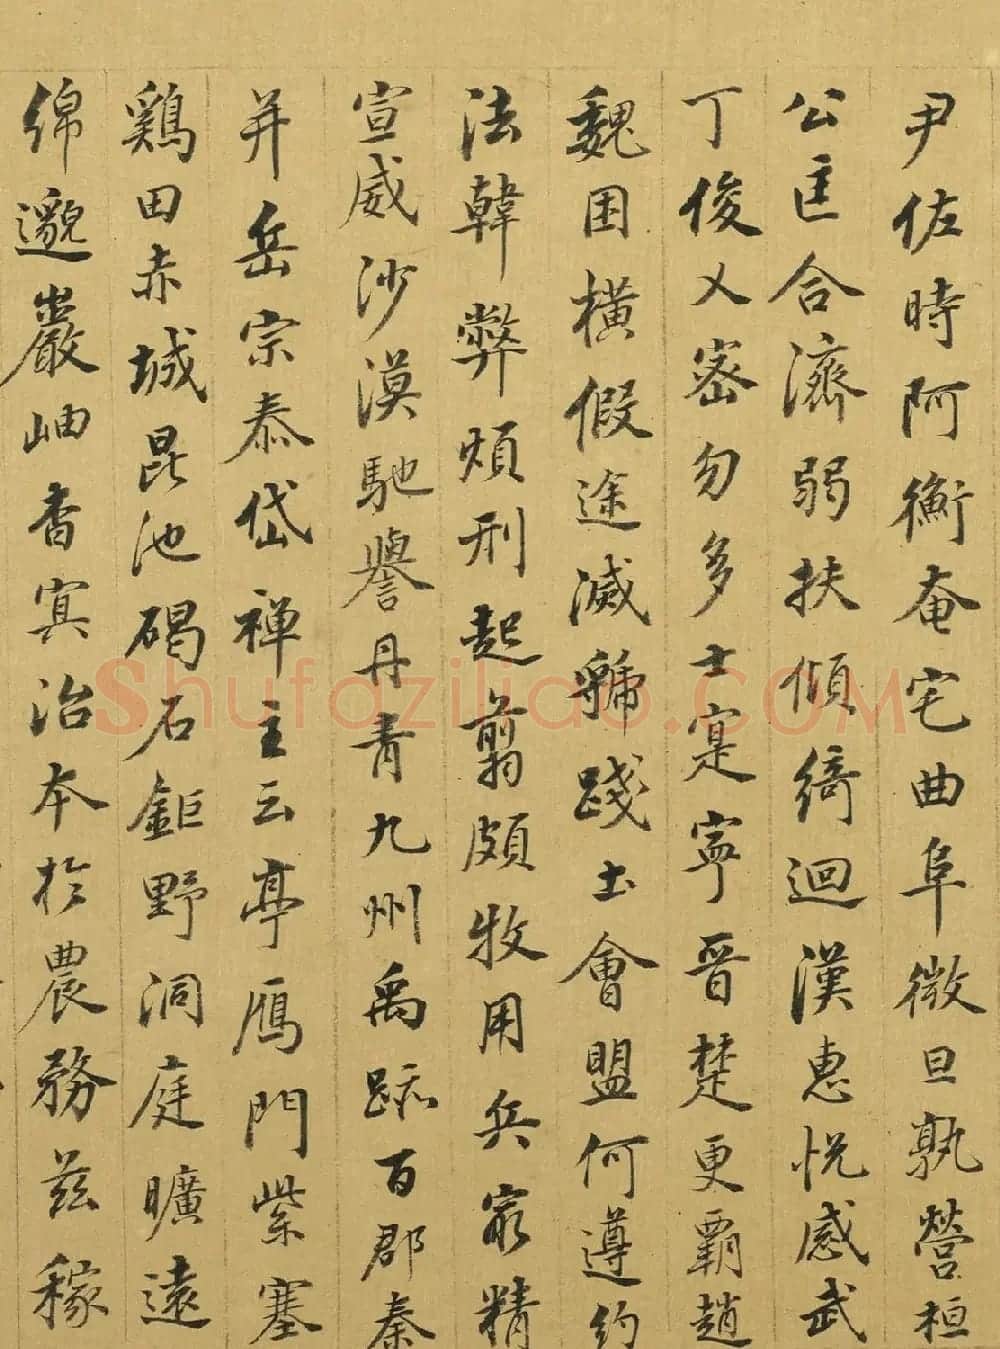 尹佐時阿衡奄宅曲阜微旦孰營桓
公匡合濟弱扶傾綺迴漢惠悅感武
丁俊乂密勿多士寔寧晉楚更霸趙
魏困橫假途滅虢踐土會盟何遵約
法韓弊煩刑起翦頗牧用兵最精
宣威沙漠馳譽丹青九州禹跡百郡秦
并岳宗泰岱禪主云亭鴈門紫塞
鷄田赤城昆池碣石鉅野洞庭曠遠
綿邈巖岫杳冥治本於農務茲稼
Shufaziliao.COM